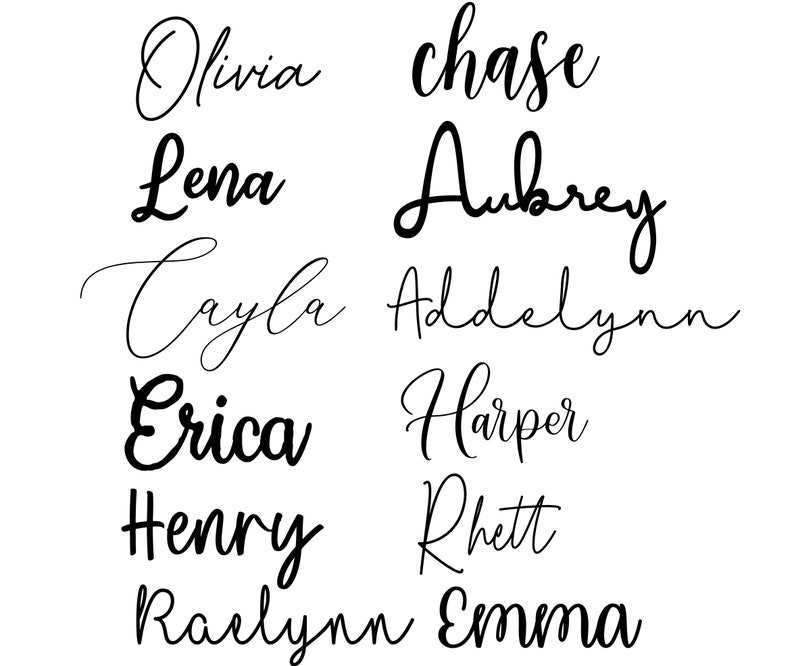 Olivia chase
Lena Aubrey
Cayla Addelynn
Erica Harper
Henry Rhett
Raelynn Emma